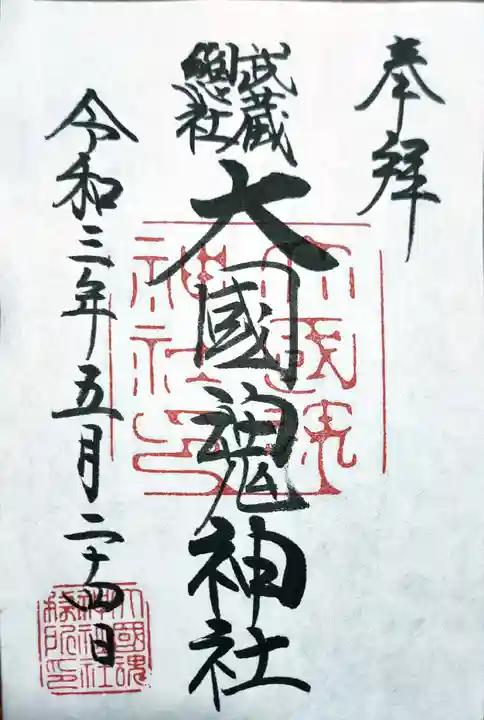 奉拝
武蔵
総社
大國魂神社
令和三年五月二十四日
大國魂
神社印
大國魂
神神社
務所印